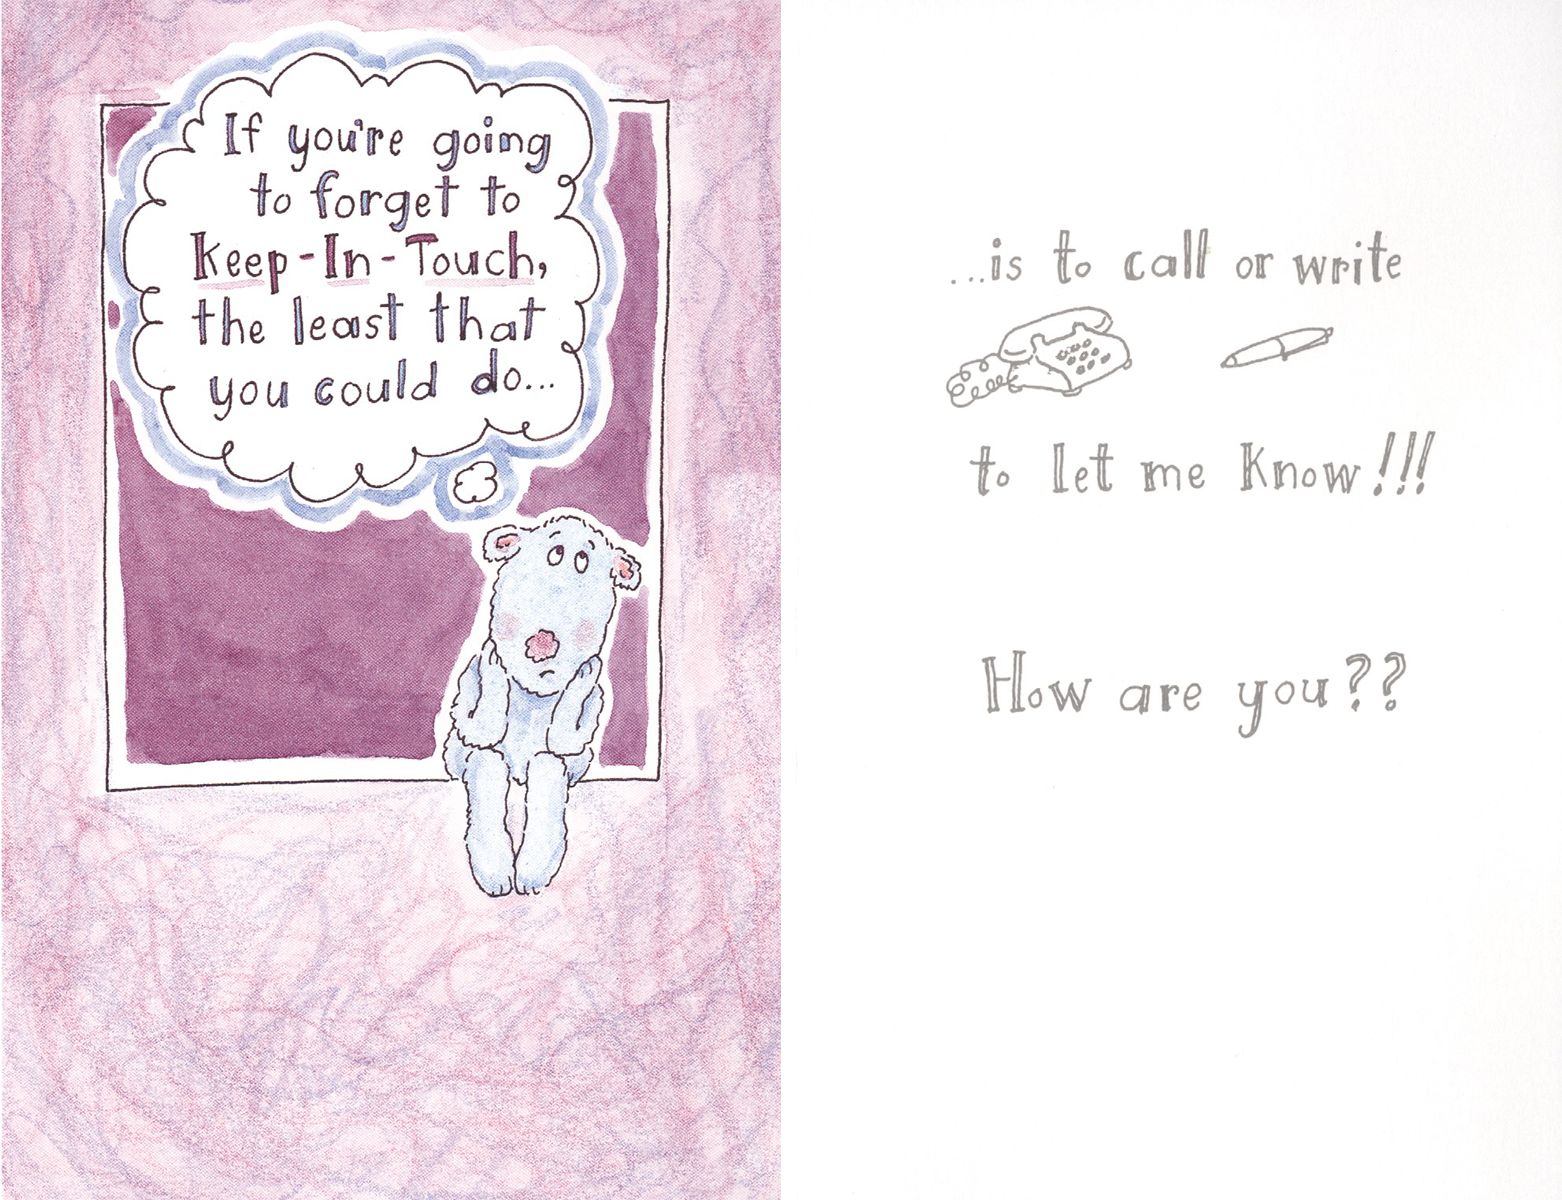 If you're going
to forget to
Keep-In-Touch,
the least that
you could do...
...is to call or write
to let me know!!!
How are you??